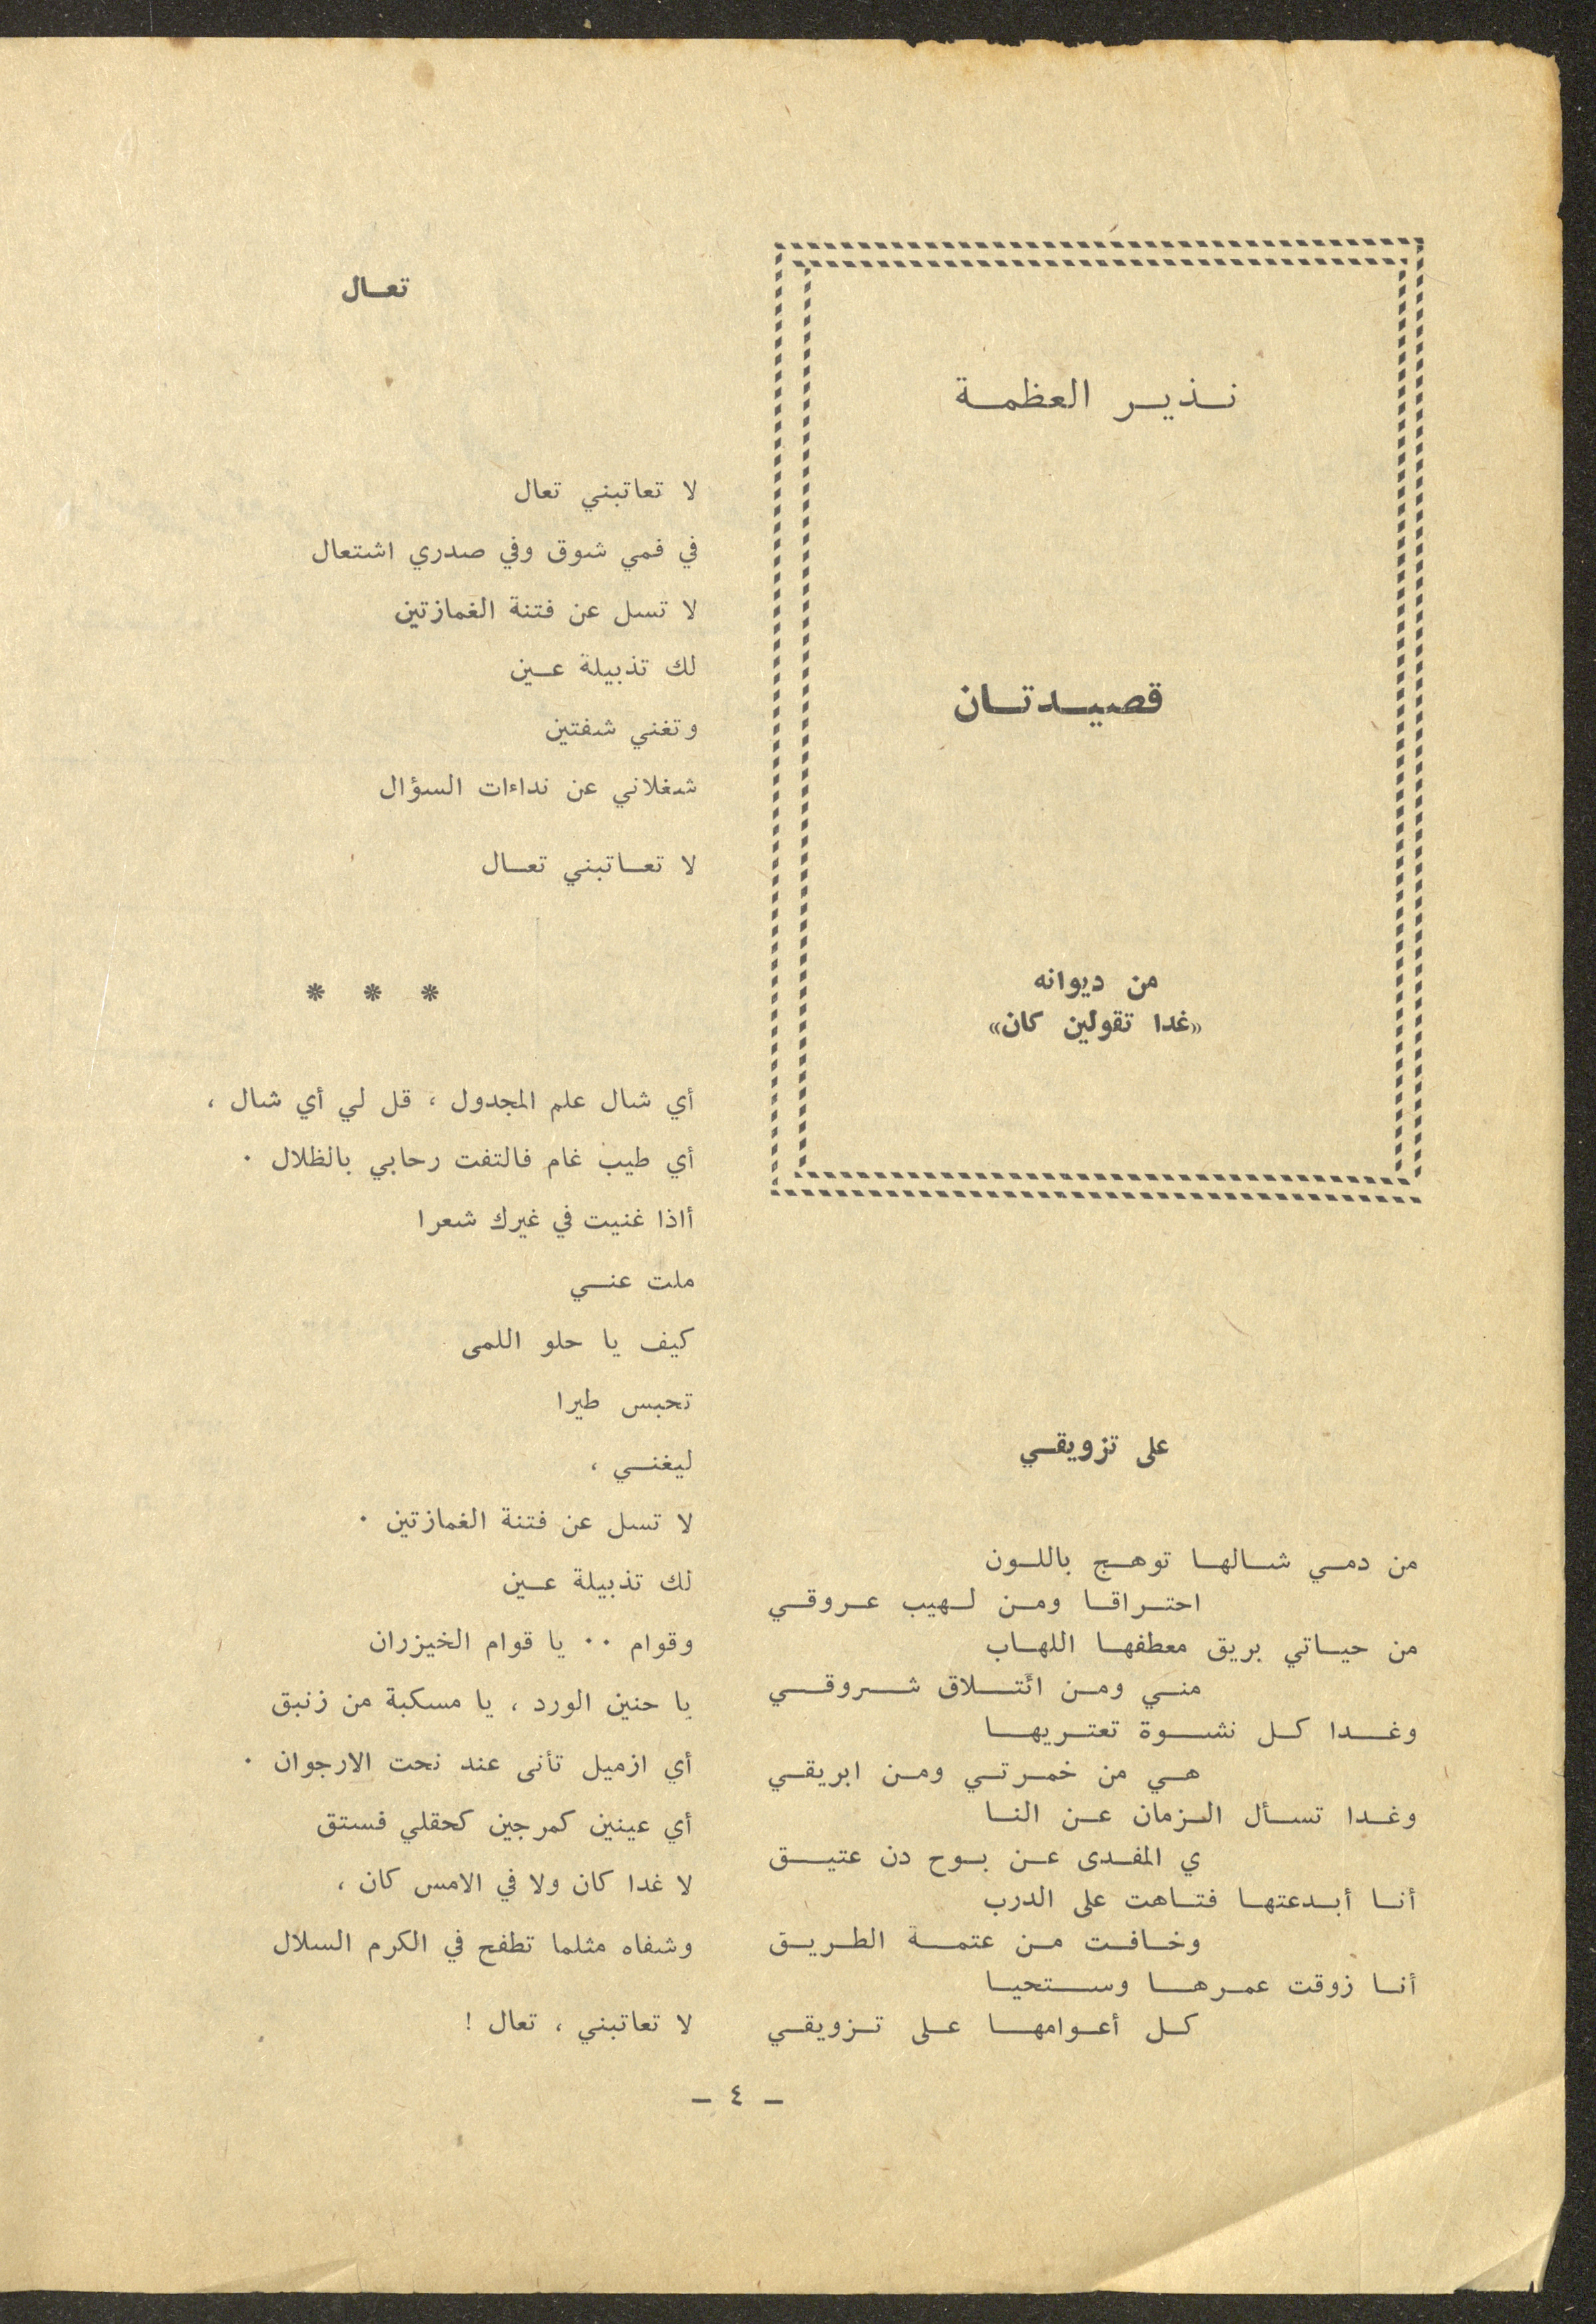 نذير العظمة
قصيدتان
من ديوانه
«غدا تقولين كان»
على تزويقي
من دمي شالها توهج باللون
احتراقا ومن لهيب عروقي
من حياتي بريق معطفها اللهاب
مني ومن ائتلاق شروقي
وغدا كل نشوة تعتريها
هي من خمرتي ومن ابريقي
وغدا تسأل الزمان عن النا
ي المفدى عن بوح دن عتيق
أنا أبدعتها فتاهت على الدرب
وخافت من عتمة الطريق
أنا زوقت عمرها وستحيا
كل أعوامها على تزويقي
تعال
لا تعاتبني تعال
في فمي شوق وفي صدري اشتعال
لا تسل عن فتنة الغمازتين
لك تذبيلة عين
وتغني شفتين
شغلاني عن نداءات السؤال
لا تعاتبني تعال
* * *
أي شال علم المجدول ، قل لي أي شال ،
أي طيب غام فالتفت رحابي بالظلال .
أاذا غنيت في غيرك شعرا
ملت عني
كيف يا حلو اللمى
تحبس طيرا
ليغني ،
لا تسل عن فتنة الغمازتين .
لك تذبيلة عين
وقوام .. يا قوام الخيزران
يا حنين الورد ، يا مسكبة من زنبق
أي ازميل تأنى عند نحت الارجوان .
أي عينين كمرجين كحقلي فستق
لا غدا كان ولا في الامس كان ،
وشفاه مثلما تطفح في الكرم السلال
لا تعاتبني ، تعال !
– ٤ –